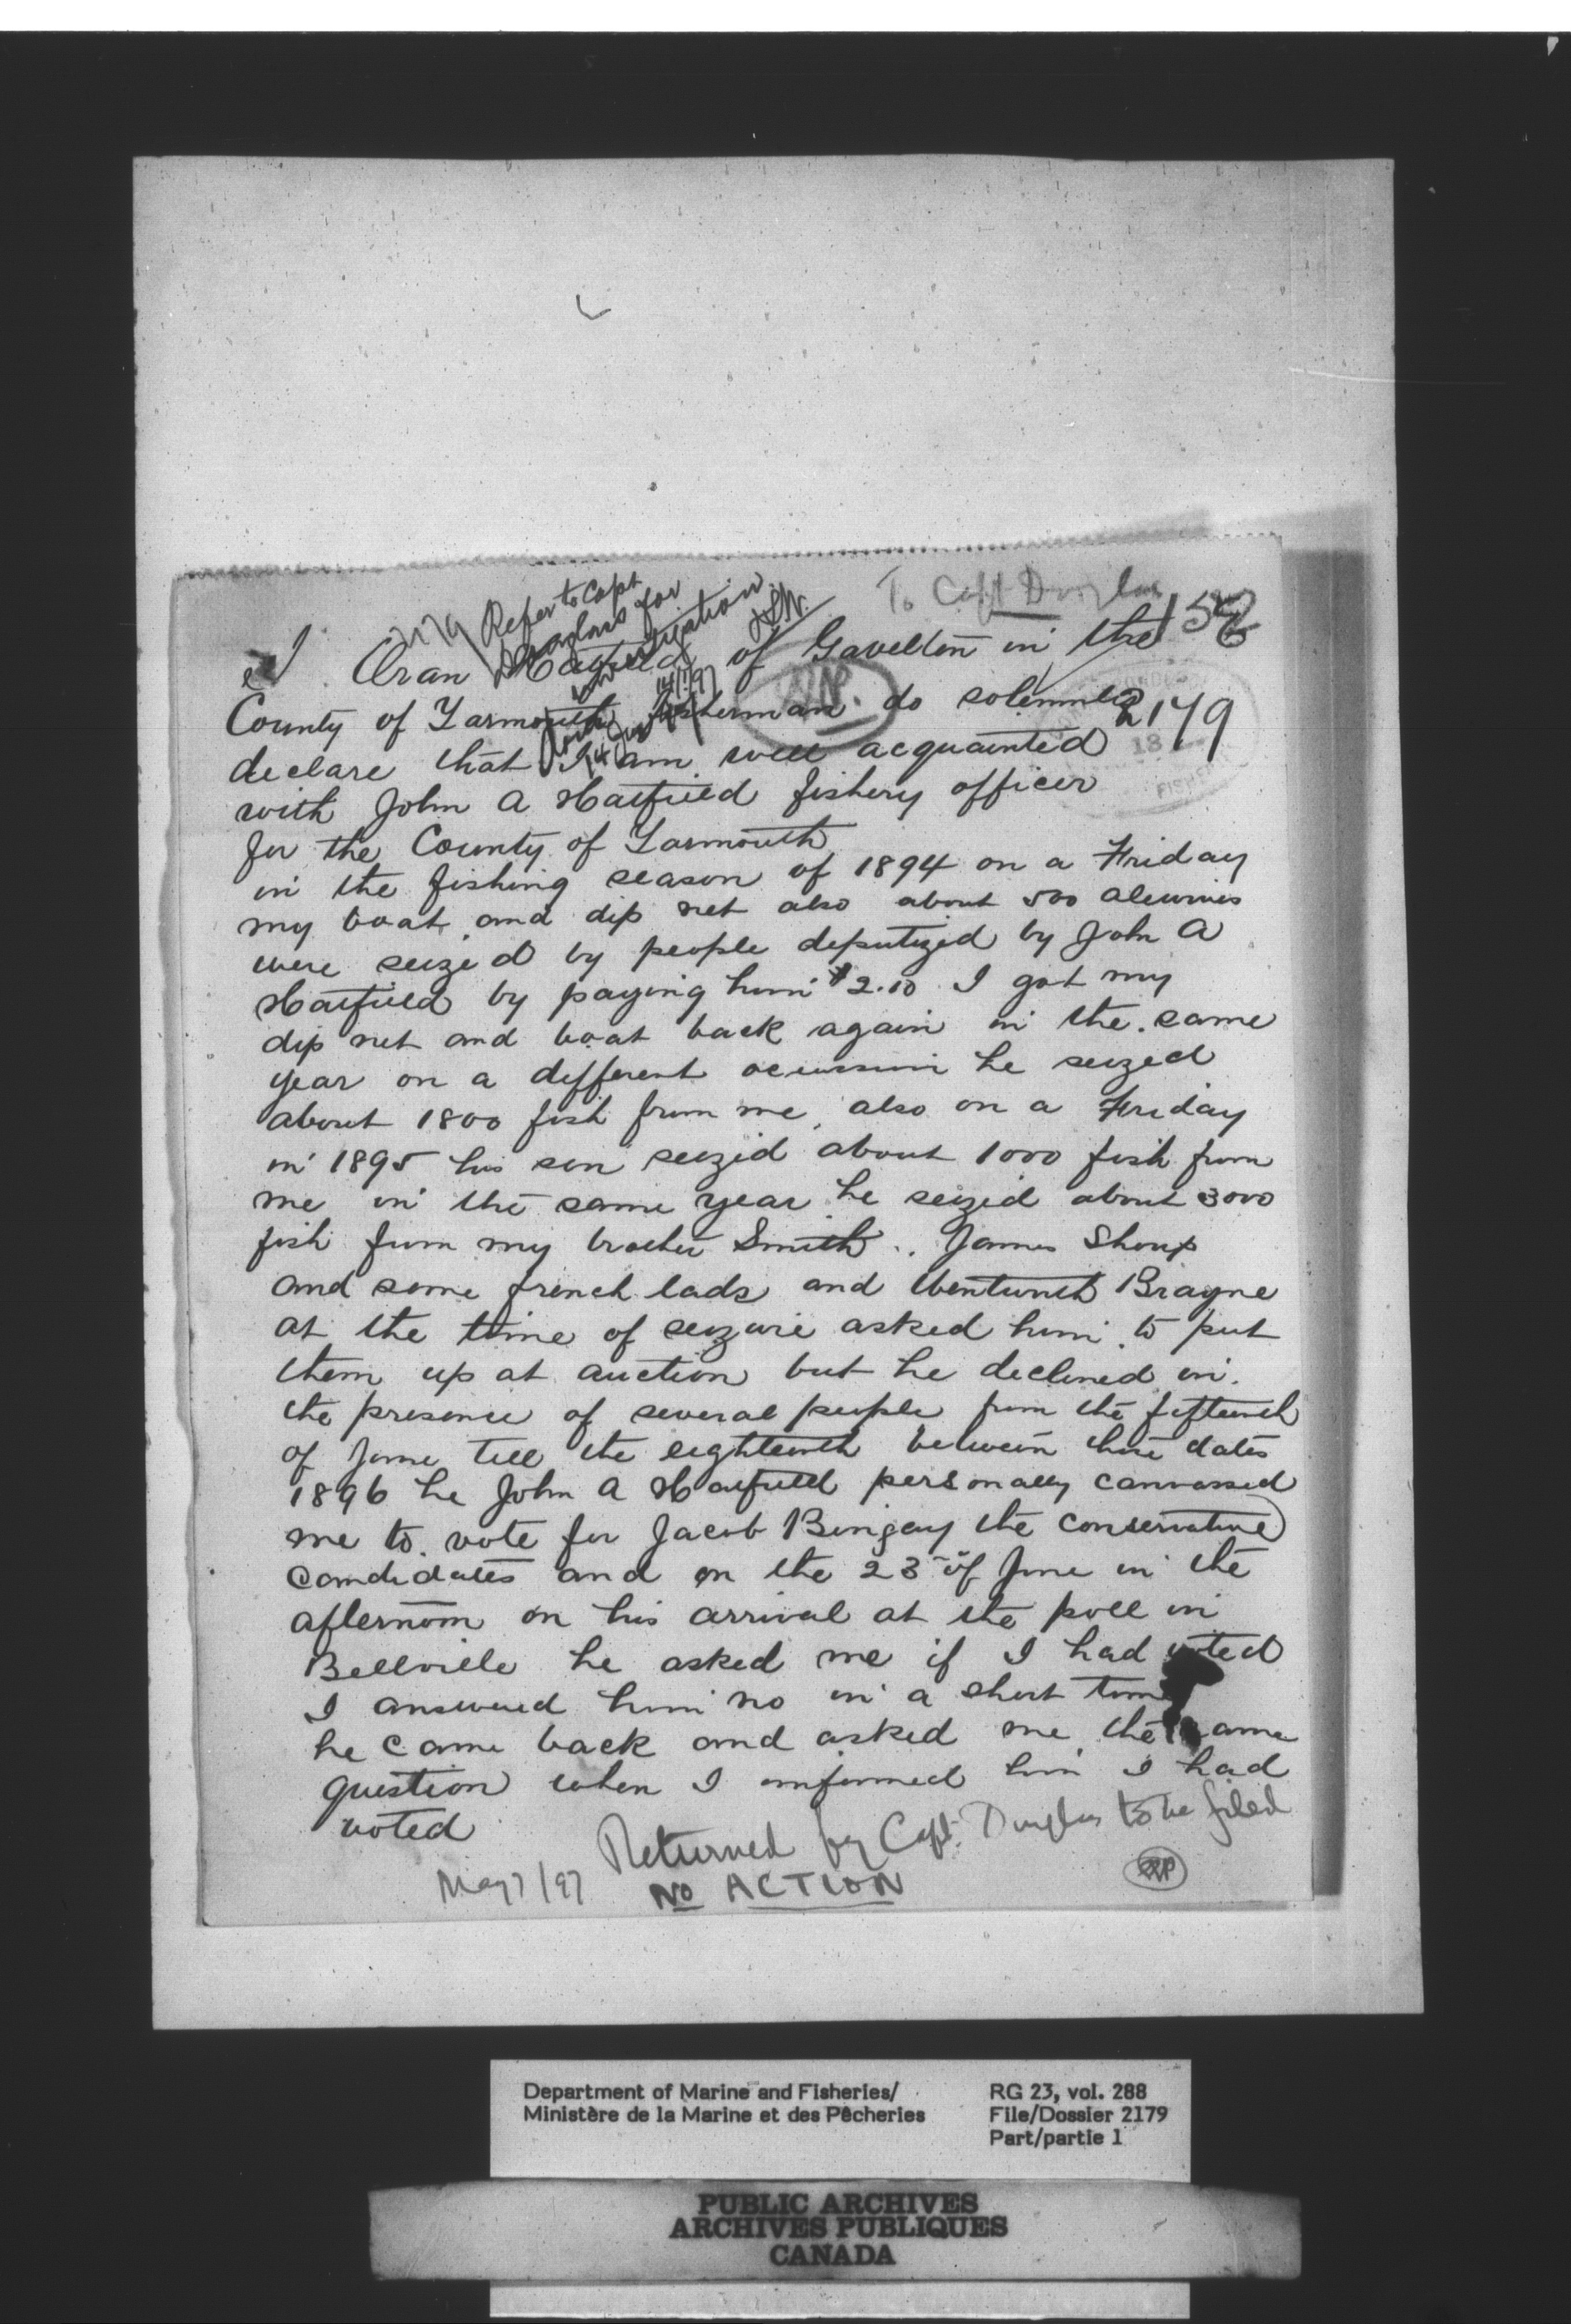 To Capt Douglas
2179
Refer to Capt
Douglas for
investigation
14/1/97
I Oran Hatfield of Gavelton in the
County of Yarmouth fisherman do solemnly
2179
declare that I am well acquainted
with John A Hatfield fishery officer
for the County of Yarmouth
in the fishing season of 1894 on a Friday
my boat and dip net also about 500 alewives
were seized by people deputized by John A
Hatfield by paying him $2.10 I got my
dip net and boat back again in the same
year on a different occassion he seized
about 1800 fish from me, also on a Friday
in 1895 his son seized about 1000 fish from
me in the same year he seized about 3000
fish from my brother Smith. James Shoup
and some french lads and Brayne
at the time of seizure asked him to put
them up at auction but he declined in
the presence of several people from the fifteenth
of June till the eighteenth between those dates
1896 he John A Hatfield personally canvassed
me to vote for Jacob Bingay the conservative
candidates and on the 23 of June in the
afternoon on his arrival at the poll in
Bellville he asked me if I had voted
I answered him no in a short time
he came back and asked me the same
question when I imformed him I had
voted
Returned by Capt. Douglas to be filed
May 7/97 No ACTION
Department of Marine and Fisheries/
Ministère de la Marine et des Pêcheries
RG 23, vol. 288
File/Dossier 2179
Part/partie 1
PUBLIC ARCHIVES
ARCHIVES PUBLIQUES
CANADA